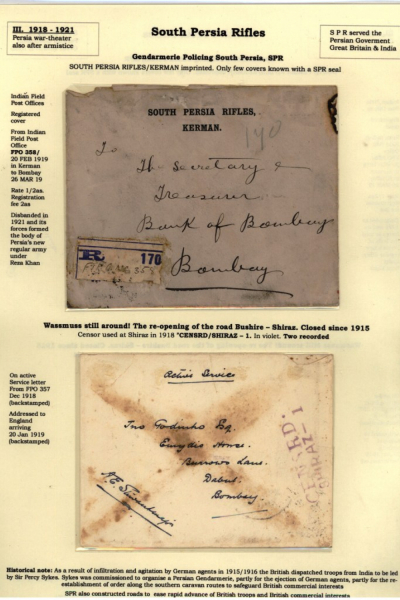 III. 1918 - 1921
Persia war-theater
also after armistice
South Persia Rifles
S P R served the
Persian Goverment
Great Britain & India
Gendarmerie Policing South Persia, SPR
SOUTH PERSIA RIFLES/KERMAN imprinted. Only few covers known with a SPR seal
Indian Field
Post Offices
Registered
cover
From Indian
Field Post
Office
FPO 358/
20 FEB 1919
in Kerman
to Bombay
26 MAR 19
Rate 1/2as.
Registration
fee 2as
Disbanded in
1921 and its
forces formed
the body of
Persia's new
regular army
under
Reza Khan
SOUTH PERSIA RIFLES,
KERMAN.
190
To
The Secretary &
Treasurer
Bank of Bombay
Bombay
R 170
Wassmuss still around! The re-opening of the road Bushire – Shiraz. Closed since 1915
Censor used at Shiraz in 1918 "CENSRD/SHIRAZ – 1. In violet. Two recorded
On active
Service letter
From FPO 357
Dec 1918
(backstamped)
Addressed to
England
arriving
20 Jan 1919
(backstamped)
Active Service
Godinho Esq.
House.
Burrows Lane.
Dabul.
Bombay.
RD.
SHIRAZ – 1.
Historical note: As a result of infiltration and agitation by German agents in 1915/1916 the British dispatched troops from India to be led
by Sir Percy Sykes. Sykes was commissioned to organise a Persian Gendarmerie, partly for the ejection of German agents, partly for the re-
establishment of order along the southern caravan routes to safeguard British commercial interests
SPR also constructed roads to ease rapid advance of British troops and British commercial interests